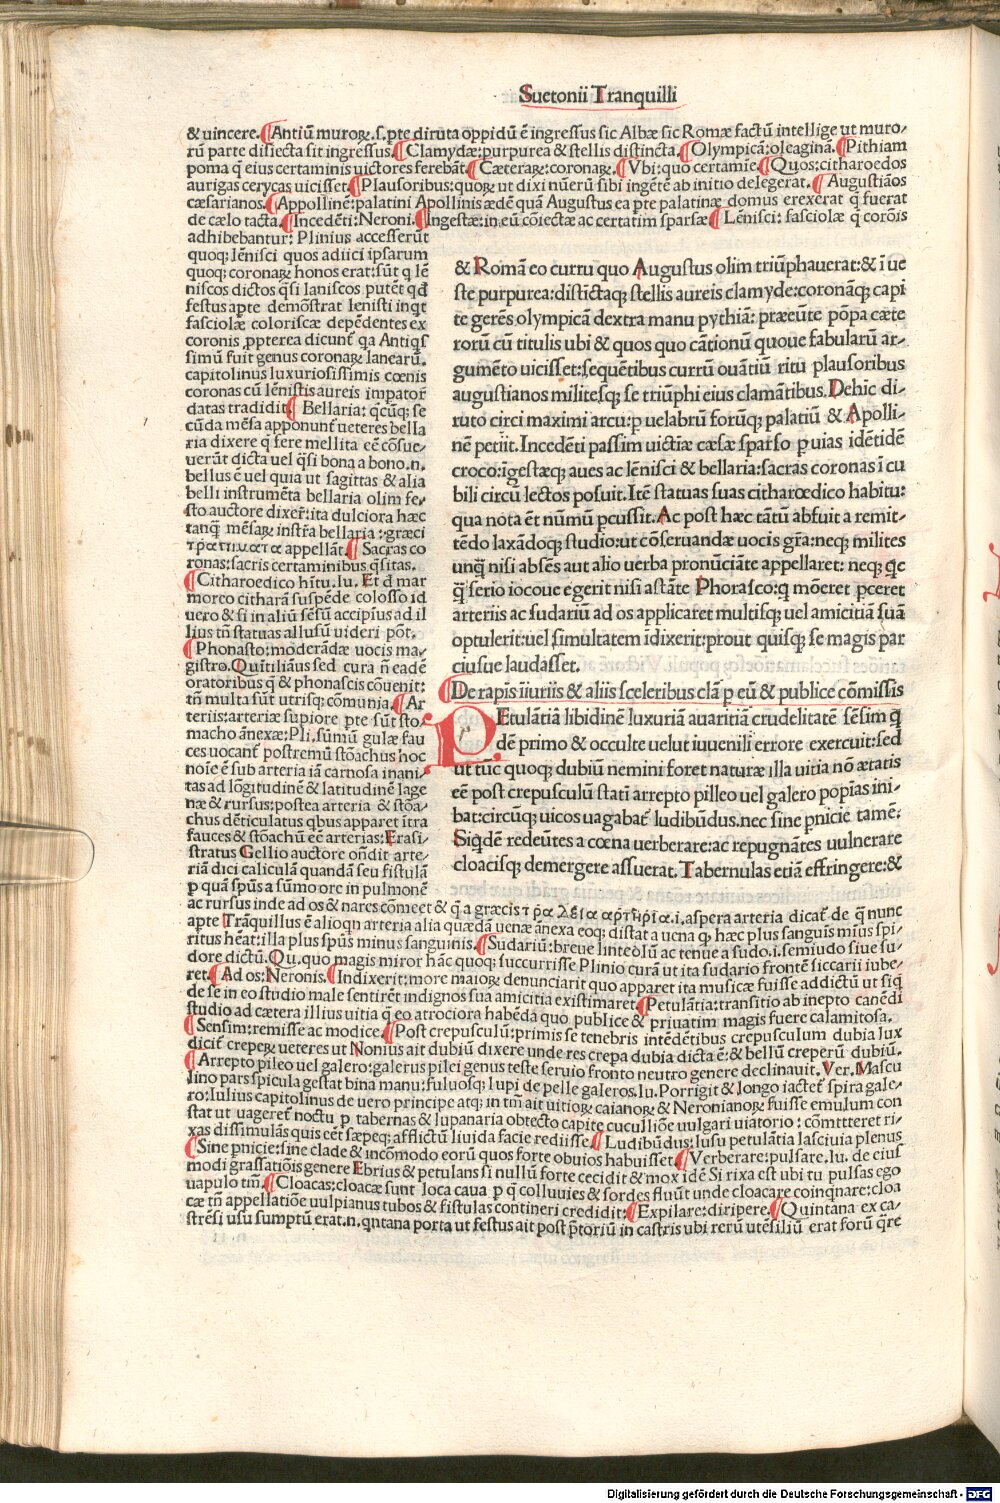 Suetonii Tranquilli
& uincere.¶Antiū muroꝝ.s.pte diruta oppidū ē ingressus sic Albæ sic Romæ factū intellige ut muro-
rū parte disiecta sit ingressus.¶Clamydæ:purpurea & stellis distincta.¶Olympicā:oleaginā.¶Pithiam
poma q̄ eius certaminis uictores ferebāt.¶Cæteraꝝ:coronaꝝ.¶Vbi:quo certamīe.¶Quos:citharoedos
aurigas cerycas uicisset.¶Plausoribus:quoꝝ ut dixi nūerū sibi ingētē ab initio delegerat.¶Augustiāos
cæsarianos.¶Appollinē:palatini Apollinis ædē quā Augustus ea pte palatinæ domus erexerat q̄ fuerat
de cælo tacta.¶Incedēti:Neroni.¶Ingestæ:in eū cōiectæ ac certatim sparsæ¶Lēnisci: fasciolæ q̄ corōis
adhibebantur: Plinius accesserūt
quoq; lēnisci quos adiici ipsarum
quoq; coronaꝝ honos erat:sūt q lē
niscos dictos q̄si laniscos putēt qd
festus apte demōstrat lenisti inqt
fasciolæ coloriscæ depēdentes ex
coronis ꝓpterea dicunt̃ qa Antiqs
simū fuit genus coronaꝝ lanearū.
capitolinus luxuriosissimis cœnis
coronas cū lēnistis aureis impator̃
datas tradidit.¶Bellaria: q̄cūq; se
cūda mēsa apponunt̃ ueteres bella
ria dixere q̄ fere mellita eē cōsue-
uerūt dicta uel q̄si bona a bono.n.
bellus ē uel quia ut sagittas & alia
belli instrumēta bellaria olim fe-
sto auctore dixer̃:ita dulciora hæc
tanq̃ mēsaꝝ instr̃a bellaria :græci
τραγηματα appellāt.¶Sacras co
ronas:sacris certaminibus q̄sitas.
¶Citharoedico hr̄tu.Iu. Et d mar
moreo citharā suspēde colosso id
uero & si in aliū sēsū accipius ad il
lius tñ statuas allusū uideri põt.
¶Phonasto:moderādæ uocis ma-
gistro.Quītiliāus sed cura ñ eadē
oratoribus q̄ & phonascis cōuenit:
tñ multa sūt utrisq; cōmunia.¶Ar
teriis:arteriæ supiore pte sūt sto-
macho ānexæ:Pli.sūmū gulæ fau
ces uocant̃ postremū stōachus hoc
noīe ē sub arteria iā carnosa inani-
tas ad lōgitudinē & latitudinē lage
næ & rursus:postea arteria & stōa-
chus dēticulatus qbus apparet ītra
fauces & stōachū eē arterias:Erasi-
stratus Gellio auctore oñdit arte-
riā dici caliculā quandā seu fistulā
p quā spūs a sūmo ore in pulmonē
& Romā eo curru quo Augustus olim triūphauerat:& ī ue
ste purpurea:distictaq; stellis aureis clamyde:coronāq; capi
te gerēs olympicā dextra manu pythiā: præeūte pōpa cæte
rorū cū titulis ubi & quos quo cātionū quoue fabularū ar-
gumēto uicisset:sequētibus currū ouātiū ritu plausoribus
augustianos militesq; se triūphi eius clamātibus.Dehic di-
ruto circi maximi arcu:p uelabrū forūq; palatiū & Apolli-
nē petiit.Incedēti passim uictiæ cæsæ sparso p uias idētidē
croco:īgestæq; aues ac lēnisci & bellaria:sacras coronas ī cu
bili circū lectos posuit.Itē statuas suas citharœdico habitu:
qua nota ēt nūmū pcussit.Ac post hæc tātū abfuit a remit-
tēdo laxādoq; studio:ut cōseruandæ uocis gr̄a:neq; milites
unq̄ nisi absēs aut alio uerba pronūciāte appellaret: neq; qc
q̄ serio iocoue egerit nisi astāte Phorasco:q mōeret pceret
arteriis ac sudariū ad os applicaret multisq; uel amicitiā suā
optulerit:uel simultatem īdixerit:prout quisq; se magis par
ciusue laudasset.
¶De rapis īiuriis & aliis sceleribus clā p eū & publice cōmissis
PEtulātiā libidinē luxuriā auaritiā crudelitatē sēsim q̄
dē primo & occulte uelut iuuenili errore exercuit:sed
ut tūc quoq; dubiū nemini foret naturæ illa uitia nō ætatis
eē post crepusculū statī arrepto pilleo uel galero popīas ini-
bat:circūq; uicos uagabat̃ ludibūdus.nec sine pnicie tamē:
Siqdē redeūtes a cœna uerberare:ac repugnātes uulnerare
cloacisq; demergere assuerat. Tabernulas etiā effringere:&
ac rursus inde ad os & nares cōmeet & q̄ a græcis τραχεια αρτηρια.i.aspera arteria dicat̃ de q̄ nunc
apte Trāquillus ē alioqn arteria alia quædā uenæ ānexa eoq; distat a uena q, hæc plus sanguis mīus spi-
ritus hēat:illa plus spūs minus sanguinis.¶Sudariū:breue linteolū ac tenue a sudo.i.semiudo siue su-
dore dictū.Qu.quo magis miror hāc quoq; succurrisse Plinio curā ut ita sudario frontē siccarii iube-
ret.¶Ad os:Neronis.¶Indixerit:more maioꝝ denunciarit quo apparet ita musicæ fuisse addictū ut siq
de se in eo studio male sentirēt indignos sua amicitia existimaret.¶Petulātia:transitio ab inepto canēdi
studio ad cætera illius uitia q̄ eo atrociora habēda quo publice & priuatim magis fuere calamitosa.
¶Sensim:remisse ac modice.¶Post crepusculū:primis se tenebris intēdētibus crepusculum dubia lux
dicit̃ crepeꝝ ueteres ut Nonius ait dubiū dixere unde res crepa dubia dicta ē:& bellū creperū dubiū.
¶Arrepto pileo uel galero:galerus pilei genus teste seruio fronto neutro genere declinauit.Ver.Mascu
lino pars spicula gestat bina manu:fuluosq; lupi de pelle galeros.Iu.Porrigit & longo iactet̃ spira gale-
ro:Iulius capitolinus de uero principe atq; in tm̃ ait uitioꝝ caianoꝝ & Neronianoꝝ fuisse emulum con
stat ut uageret̃ noctu p tabernas & lupanaria obtecto capite cucullōe uulgari uiatorio : cōmttteret ri-
xas dissimulās quis cēt̃ sæpeq; afflictū liuida facie rediisse.¶Ludibūdus:lusu petulātia lasciuia plenus
¶Sine pnicie:sine clade & incōmodo eorū quos forte obuios habuisset.¶Verberare:pulsare.Iu. de eius
modi grassatiōis genere Ebrius & petulans si nullū forte cecidit & mox idē Si rixa est ubi tu pulsas ego
uapulo tm̃.¶Cloacas:cloacæ sunt loca caua p q̄ colluuies & sordes fluūt unde cloacare coinqnare:cloa
cæ tñ appellatiōe uulpianus tubos & fistulas contineri credidit:¶Expilare:diripere.¶Quintana ex ca-
strēsi usu sumptū erat.n.qntana porta ut festus ait post p̄toriū in castris ubi rerū utēsiliū erat forū q̄re
Digitalisierung gefördert durch die Deutsche Forschungsgemeinschaft - DFG